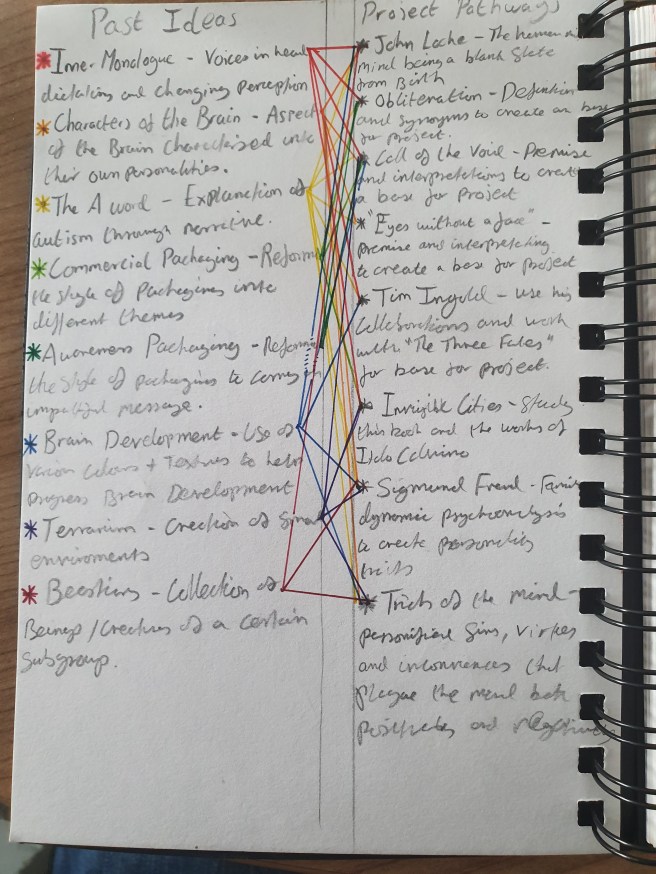 Past Ideas
Inner Monologue - Voices in head
dictating and changing perception
Characters of the Brain - Aspects
of the Brain characterised into
their own personalities.
The A word - Explanation of
autism through narrative.
Commercial Packaging - Reforming
the style of Packaging into
different themes
Awareness Packaging - Reforming
the style of packaging to carry
impactful message.
Brain Development - Use of
various colours + Textures to help
progress Brain Development
Terrarium - Creation of small
enviroments
Beastiary - Collection of
Beings/Creatures of a certain
Subgroup.
Project Pathways
John Locke - The human
mind being a blank slate
from Birth
Obliteration - Definition
and synonyms to create a base
for project.
Call of the Void - Premise
and interpretations to create
a base for project
"Eyes without a face" -
premise and interpreting
to create a base for project
Tim Ingold - use his
Collaborations and work
with "The Three Fates"
for base for project.
Invisible Cities - Study
this book and the works of
Italo Calvino
Sigmund Freud - Family
dynamic psychoanalysis
to create personality
traits
Trick of the mind -
personified Sins, Virtues
and that
plague the mind both
positively and negatively